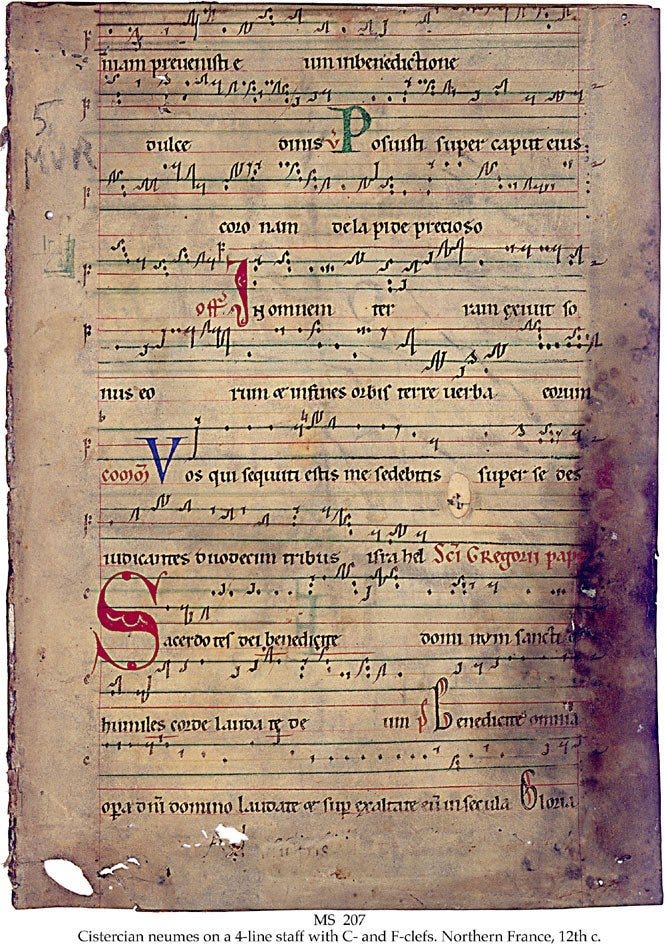 niam prevenisti e um inbenedictione
dulce dinis v Posuisti super caput eius
coro nam delapide precioso
off Inomnem ter ram exivit so
nus eo rum & infines orbis terre verba eorum
Vos qui sequuti estis me sedebitis super se des
iudicantes duodecim tribus isra hel Sci Gregorii pape
Sacerdotes dei benedicite domi num sancti
humiles corde lauda te de um p Benedicite omnia
opera dni domino laudate & sup exaltate eu insecula Gloria
5
MVR
MS 207
Cistercian neumes on a 4-line staff with C- and F-clefs. Northern France, 12th c.